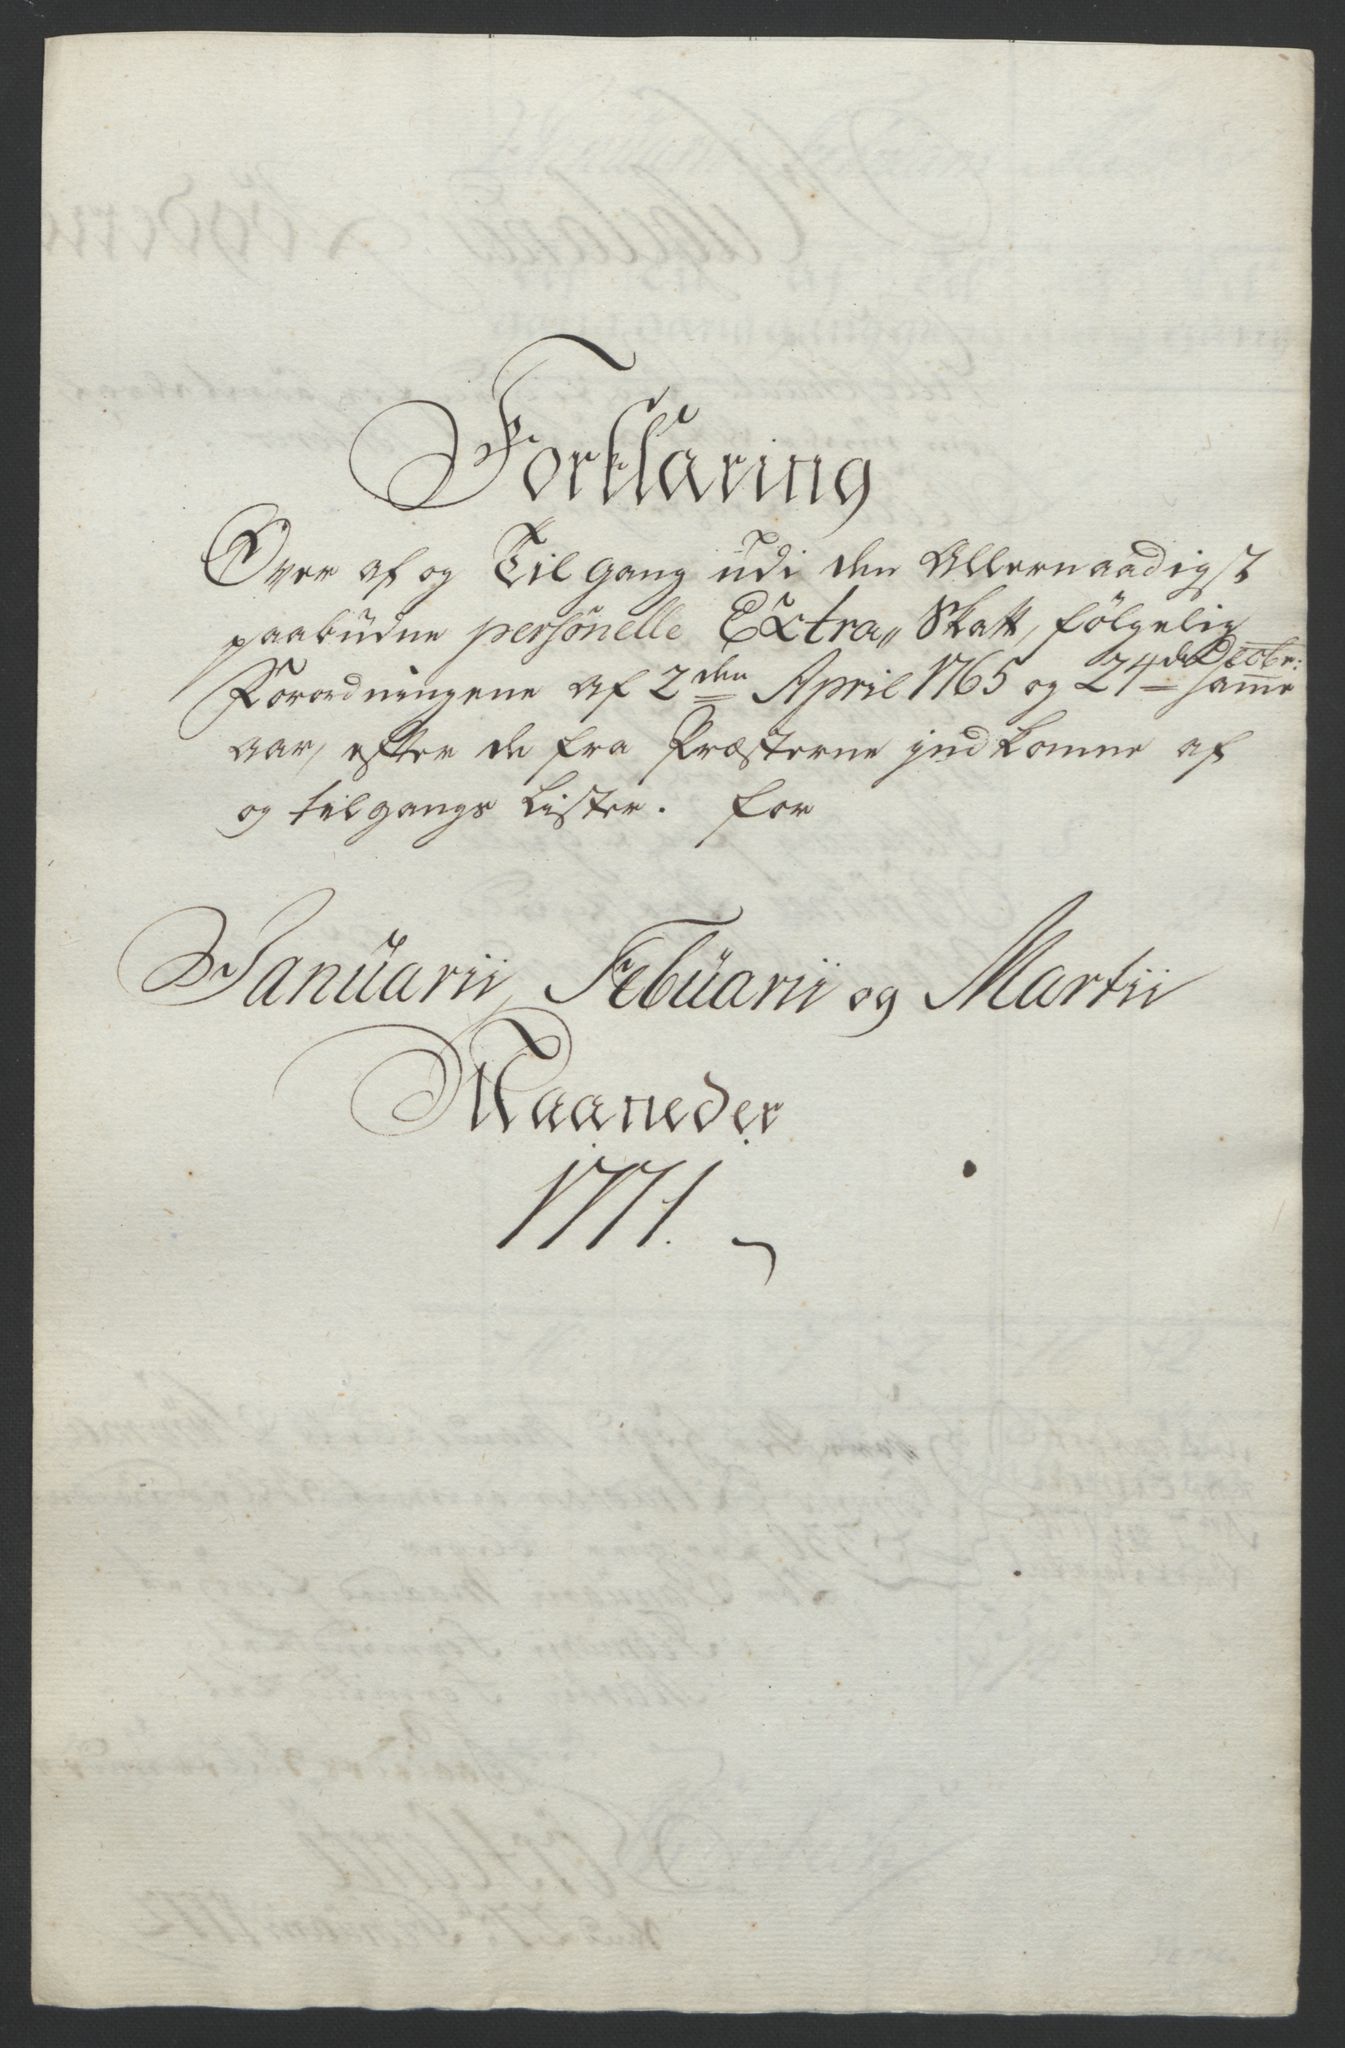 Forklaring
Over af og Til gang udi den Allernaadigst
paabudne personelle Extra„ Skatt, følgelig
Forordningene af 2den April 1765 og 24de Decbr: samme
aar, efter de fra Præsterne jndkomne af
og tilgangs Lister. for
Januarii, Febuarii og Martii
Maaneder
1771.